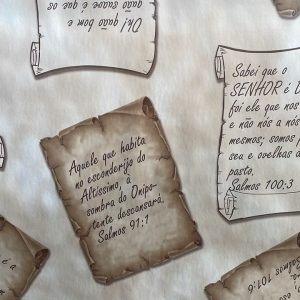 Oh! quão bom e
quão suave é que os
Aquele que habita
no esconderijo do
Altíssimo, à
sombra do Onipo-
tente descansará.
Salmos 91:1
Sabei que o
SENHOR é
foi ele que nos
e não nós a nós
mesmos; somos
seu e ovelhas do
pasto.
Salmos 100:3
é a
Salmos 101:6